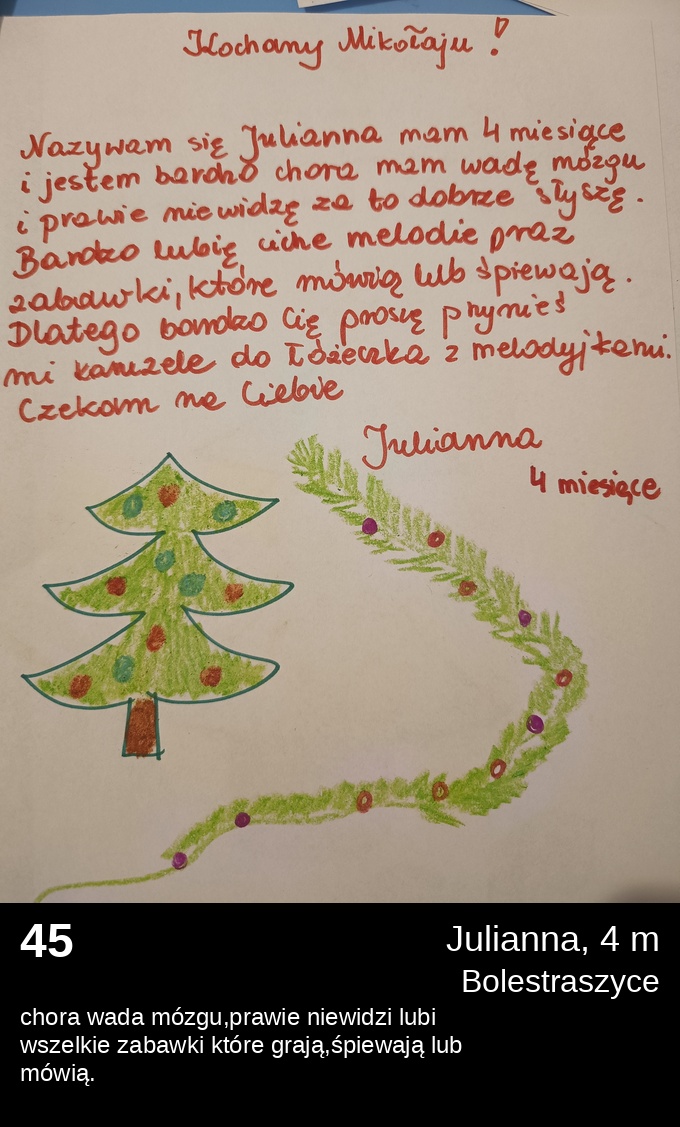 Kochany Mikołaju!
Nazywam się Julianna mam 4 miesiące
i jestem bardzo chora mam wadę mózgu
i prawie nie widzę za to dobrze słyszę.
Bardzo lubię ciche melodie oraz
zabawki, które mówią lub śpiewają.
Dlatego bardzo Cię proszę przynieś
mi karuzele do łóżeczka z melodyjkami.
Czekam na Ciebie
Julianna
4 miesiące
45
Julianna, 4 m
Bolestraszyce
chora wada mózgu,prawie niewidzi lubi
wszelkie zabawki które grają,śpiewają lub
mówią.